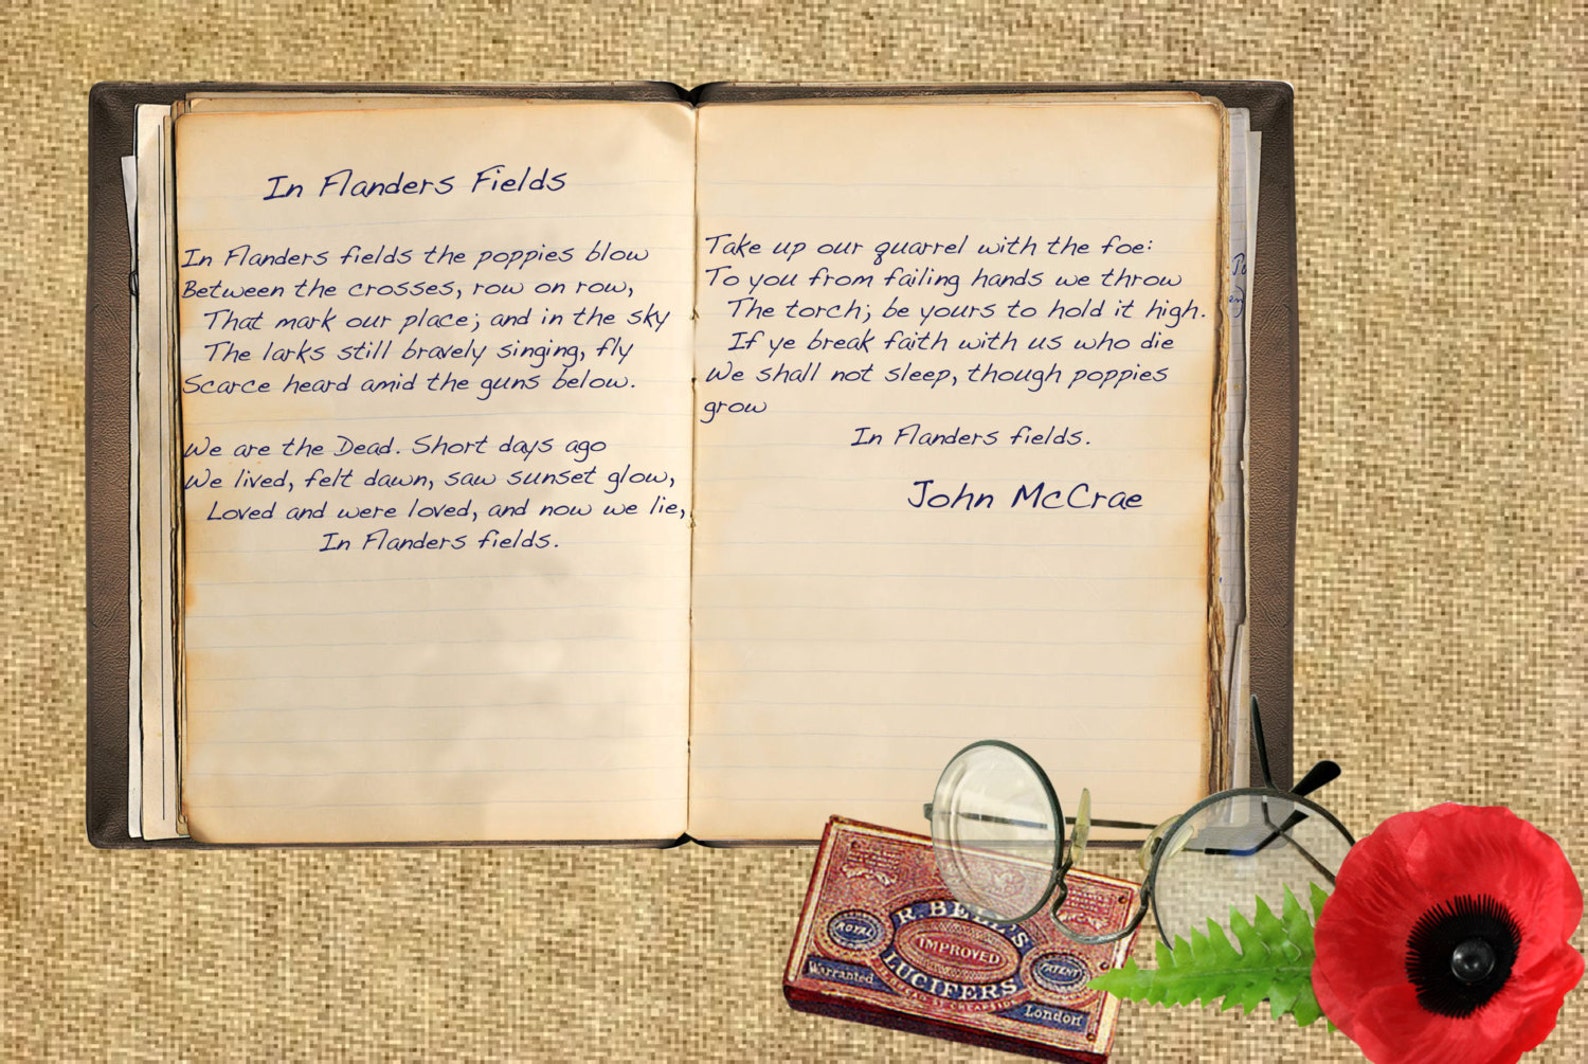 In Flanders Fields
In Flanders fields the poppies blow
Between the crosses, row on row,
That mark our place; and in the sky
The larks still bravely singing, fly
Scarce heard amid the guns below.
We are the Dead. Short days ago
We lived, felt dawn, saw sunset glow,
Loved and were loved, and now we lie,
In Flanders fields.
Take up our quarrel with the foe:
To you from failing hands we throw
The torch; be yours to hold it high.
If ye break faith with us who die
We shall not sleep, though poppies
grow
In Flanders fields.
John McCrae
R. BELL'S
ROYAL
IMPROVED
PATENT
LUCIFERS
Warranted
London